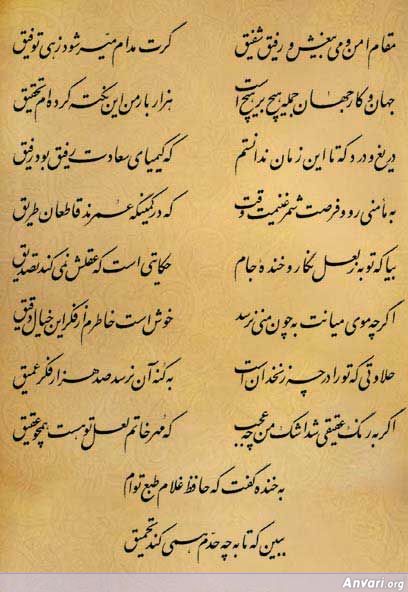 مقام امن و می بیغش و رفیق شفیق
گرت مدام میسر شود زهی توفیق
جهان و کار جهان جمله هیچ بر هیچ است
هزار بار من این نکته کرده‌ام تحقیق
دریغ و درد که تا این زمان ندانستم
که کیمیای سعادت رفیق بود رفیق
به مأمنی رو و فرصت شمر غنیمت وقت
که در کمینگه عمرند قاطعان طریق
بیا که توبه ز لعل نگار و خنده جام
حکایتی است که عقلش نمی کند تصدیق
اگرچه موی میانت به چون منی نرسد
خوش است خاطرم از فکر این خیال دقیق
حلاوتی که تو را در چه زنخدان است
به کنه آن نرسد صد هزار فکر عمیق
اگر به رنگ عقیقی شد اشک من چه عجب
که مهر خاتم لعل تو هست همچو عقیق
به خنده گفت که حافظ غلام طبع توام
ببین که تا به چه حدم همی کند تحمیق
Anvari.org